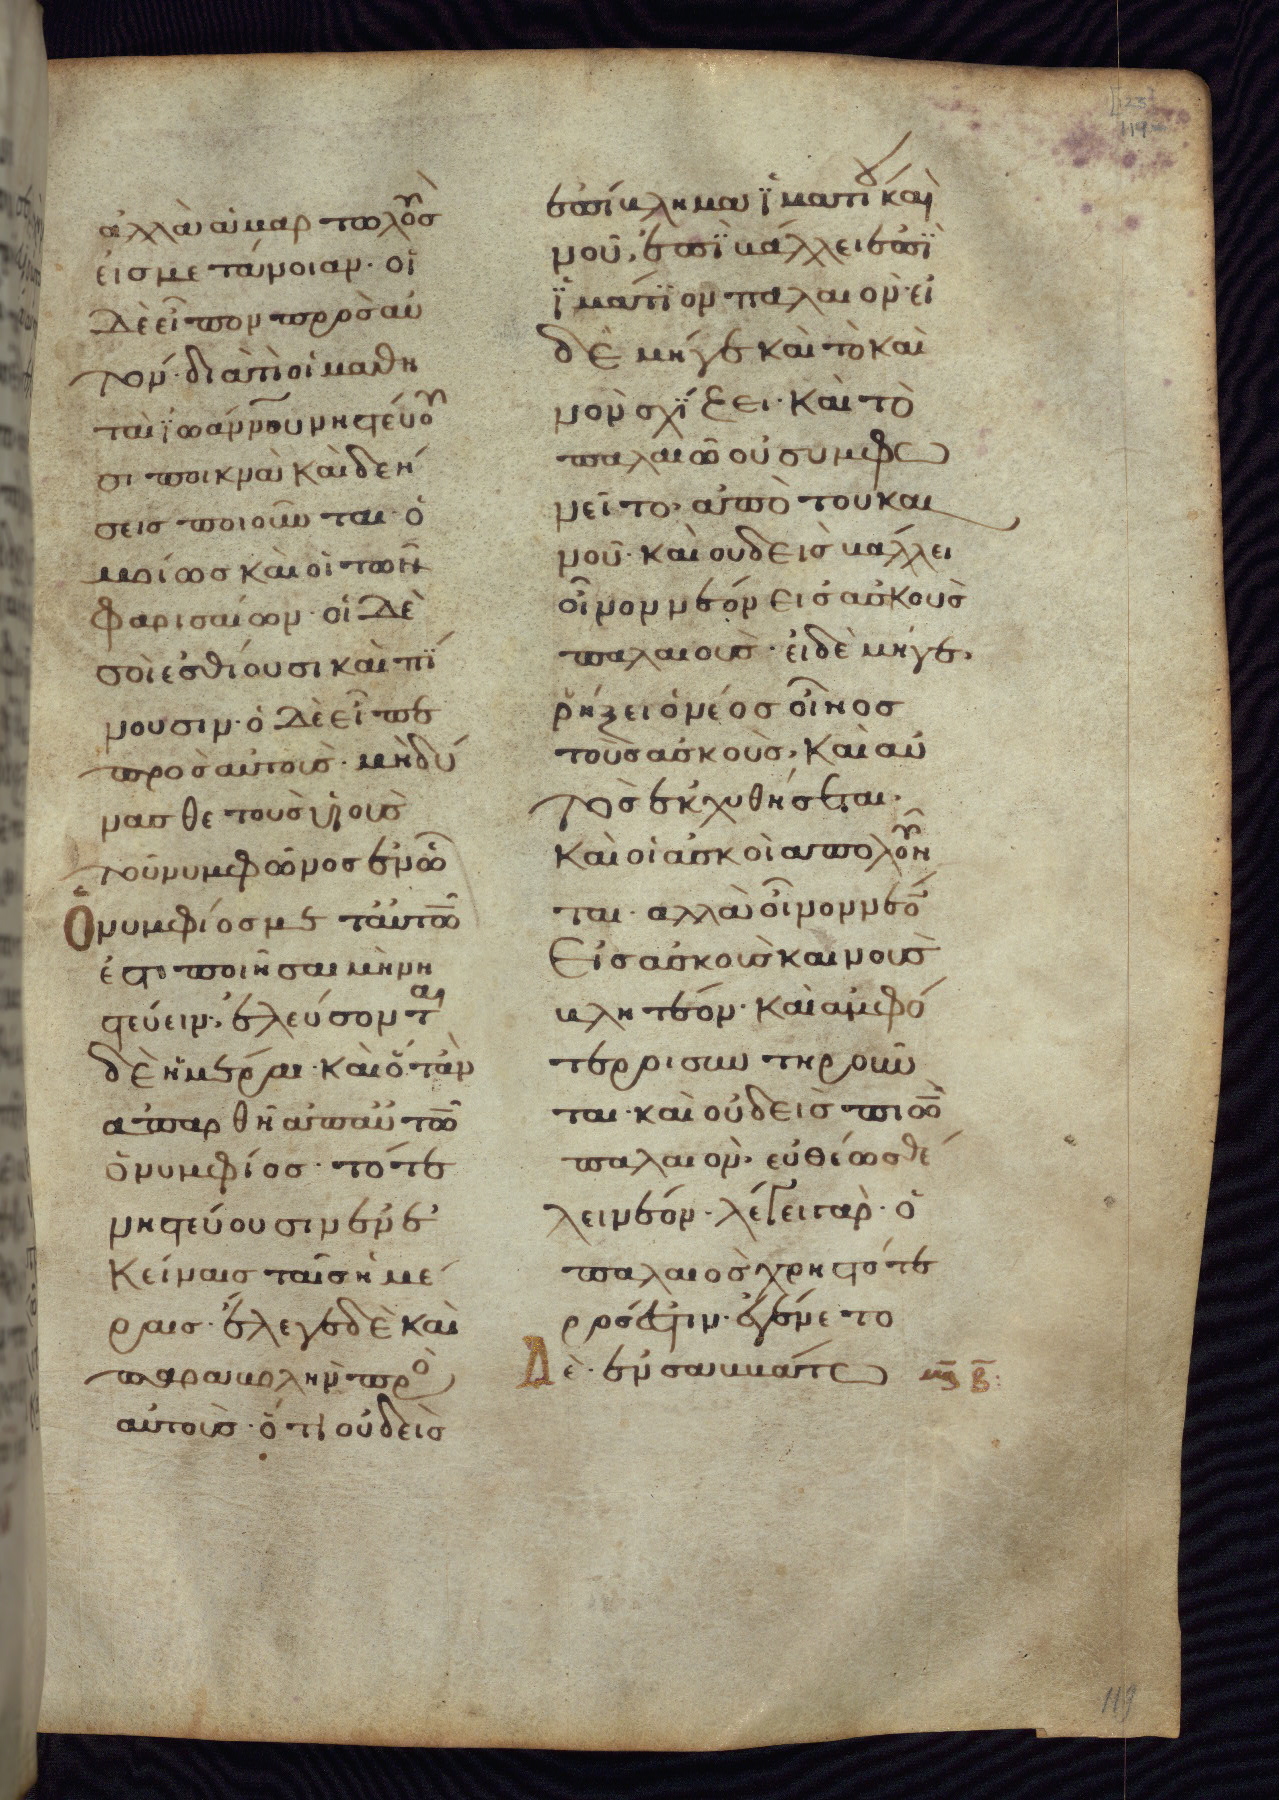 ἀλλὰ ἁμαρτωλοὺσ
εἰσ μετάνοιαν· οἱ
δὲ εἶπον πρὸσ αὐ
τόν· διατὶ οἱ μαθη
ταὶ ϊωάννου νηστεύου
σι πυκνὰ καὶ δεή
σεισ ποιοῦνται· ὁ
μοίωσ καὶ οἱ τῶν
φαρισαίων· οἱ δὲ
σοὶ ἐσθίουσι καὶ πΐ
νουσιν· ὁ δὲ εἶπε
πρὸσ αὐτοὺσ· μὴ δύ
νασθε τοὺσ υἱοὺσ
τοῦ νυμφῶνοσ ἐν ᾧ
Ὁ νυμφίοσ μετ αὐτῶν
ἐστι ποιῆσαι νη
στεύειν· ἐλεύσονται
δὲ ἡμέραι· καὶ ὅταν
ἀπαρθῆ ἀπ αὐτῶν
ὁ νυμφίοσ· τότε
νηστεύουσιν ἐν ἐ
κείναισ ταῖσ ἡμέ
ραισ· ἔλεγε δὲ καὶ
παραβολὴν πρὸ
αὐτοὺσ· ὅτι οὐδεὶσ
ἐπίβλημα ϊματίου και
νοῦ, ἐπϊβάλλει ἐπϊ
ϊμάτϊον παλαιὸν· εἰ
δὲ μήγε καὶ τὸ και
νὸν σχΐζει· καὶ τῶ
παλαιῶ οὐ συμφω
νεῖ τὸ ἀπὸ τοῦ και
νοῦ· καὶ ουδεὶσ βάλλει
οἶνον νέον εἰσ ἀσκοὺσ
παλαιοὺσ· εἰδὲ μήγε,
ῥήξει ὁ νέοσ οἶνοσ
τοὺσ ἀσκοὺσ, καὶ αὐ
τὸσ ἐκχυθήσεται·
καὶ οἱ ἀσκοὶ ἀπολοῦν
ται· ἀλλὰ οἶνον νέον
Εἰσ ἀσκοὺσ καινοὺσ
βλητέον· καὶ ἀμφό
τεροι συντηροῦν
ται· καὶ οὐδεὶσ πιὼν
παλαιὸν, εὐθέωσ θέ
λει νέον· λέγει γὰρ· ὁ
παλαιὸσ χρηστότε
ρόσ ἐστιν· ἐγένετο
Δὲ· ἐν σαββάτω